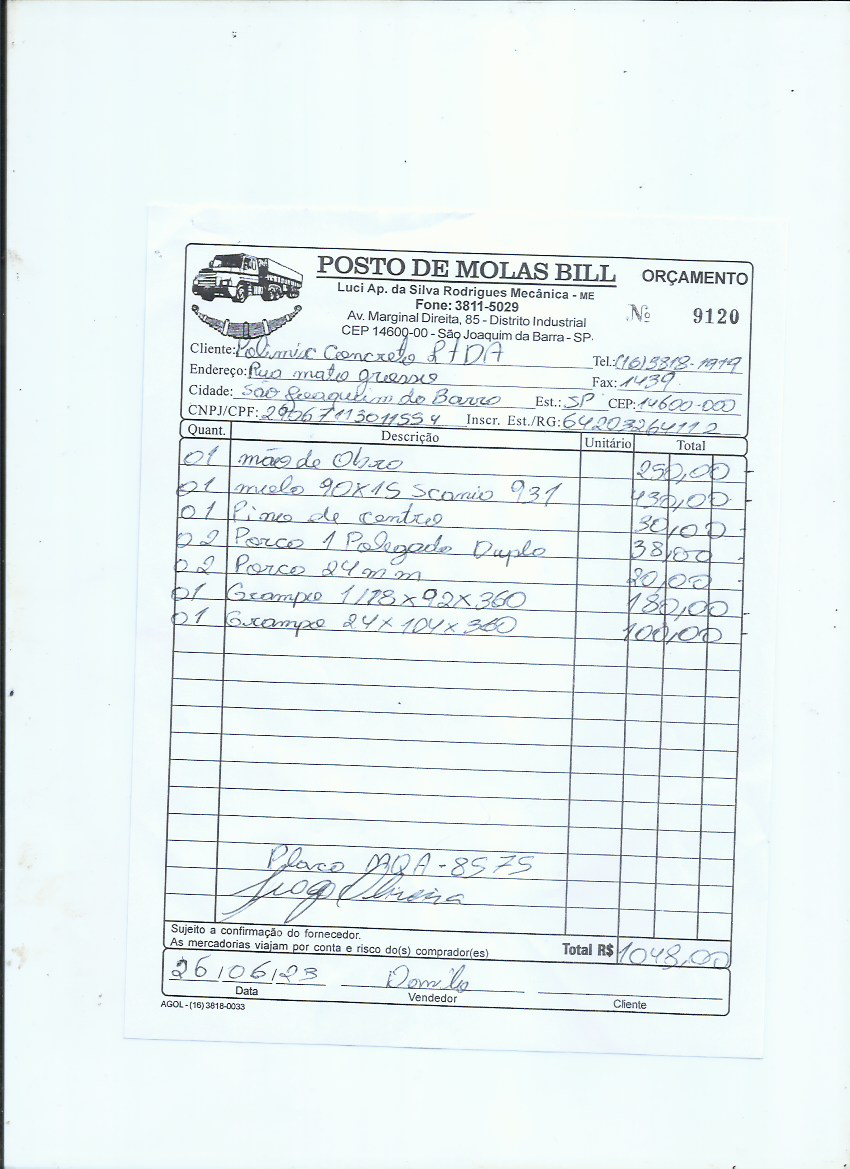 POSTO DE MOLAS BILL
ORÇAMENTO
Luci Ap. da Silva Rodrigues Mecânica - ME
Fone: 3811-5029
Nº 9120
Av. Marginal Direita, 85 - Distrito Industrial
CEP 14600-00 - São Joaquim da Barra - SP.
Cliente: Polimix Concreto LTDA Tel.: (16) 3818-1919
Endereço: Rua mato grosso Fax: 1439
Cidade: São Joaquim da Barra Est.: SP CEP: 14600-000
CNPJ/CPF: 29067113011554 Inscr. Est./RG: 642032641112
Quant. Descrição Unitário Total
01 mão de Obra 250,00
01 mola 90x15 Scania 931 430,00
01 Pino de centro 30,00
02 Porca 1 Polegada Dupla 38,00
02 Porca 24mm 20,00
01 Grampo 1/18x92x360 180,00
01 Grampo 24x104x360 100,00
Placa -8575
Oliveira
Sujeito a confirmação do fornecedor.
As mercadorias viajam por conta e risco do(s) comprador(es)
Total R$ 1048,00
26/06/23 Danilo
Data Vendedor Cliente
AGOL - (16) 3818-0033